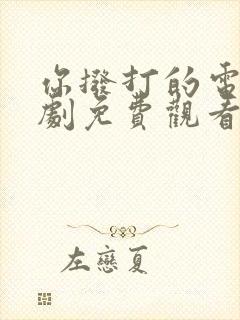 你撥打的電
劇免費觀看
左戀夏